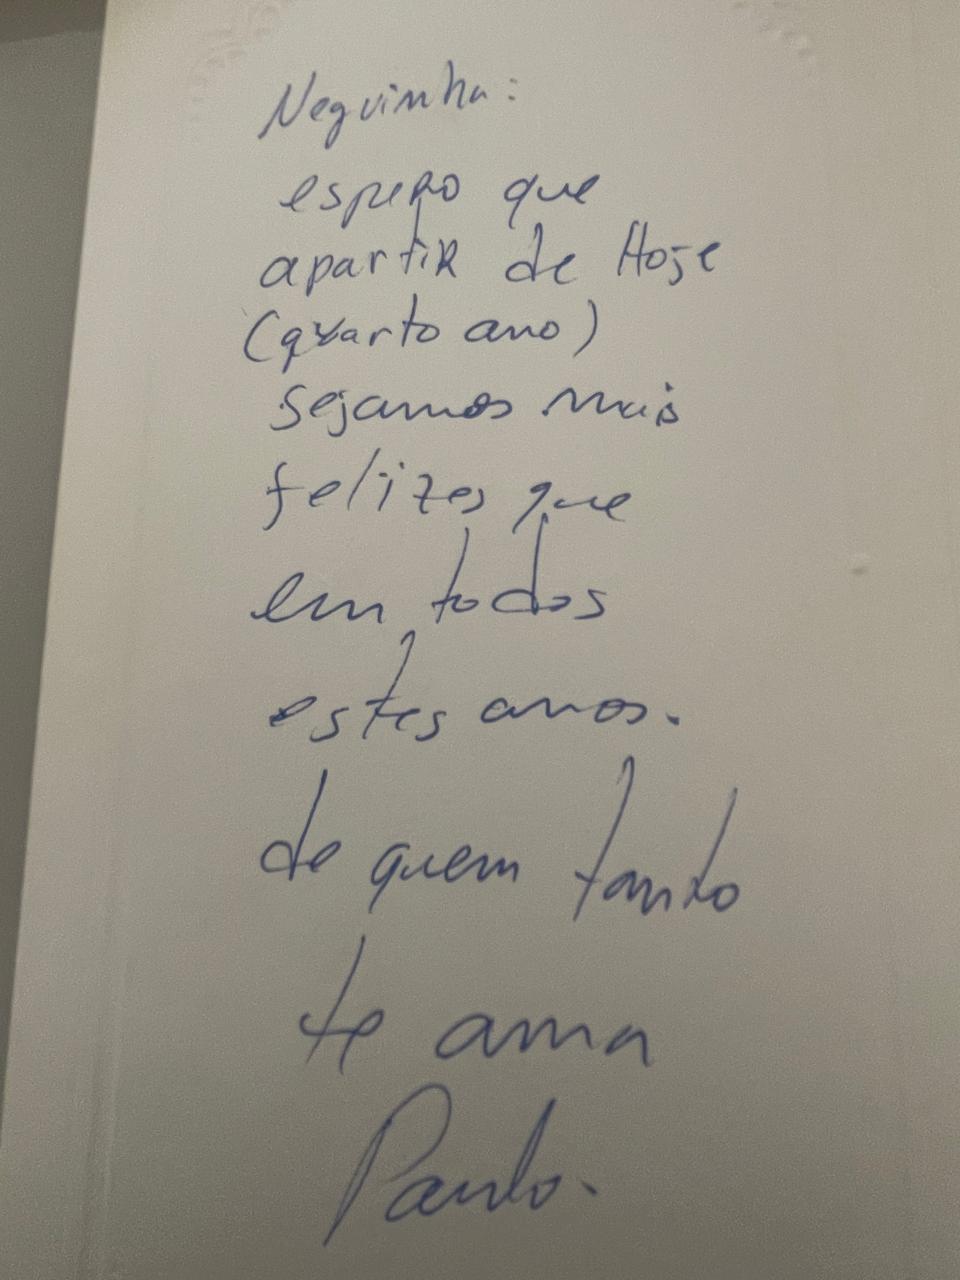 Neguinha:
espero que
apartir de Hoje
(quarto ano)
sejamos mais
felizes que
em todos
estes anos.
de quem tanto
te ama
Paulo.